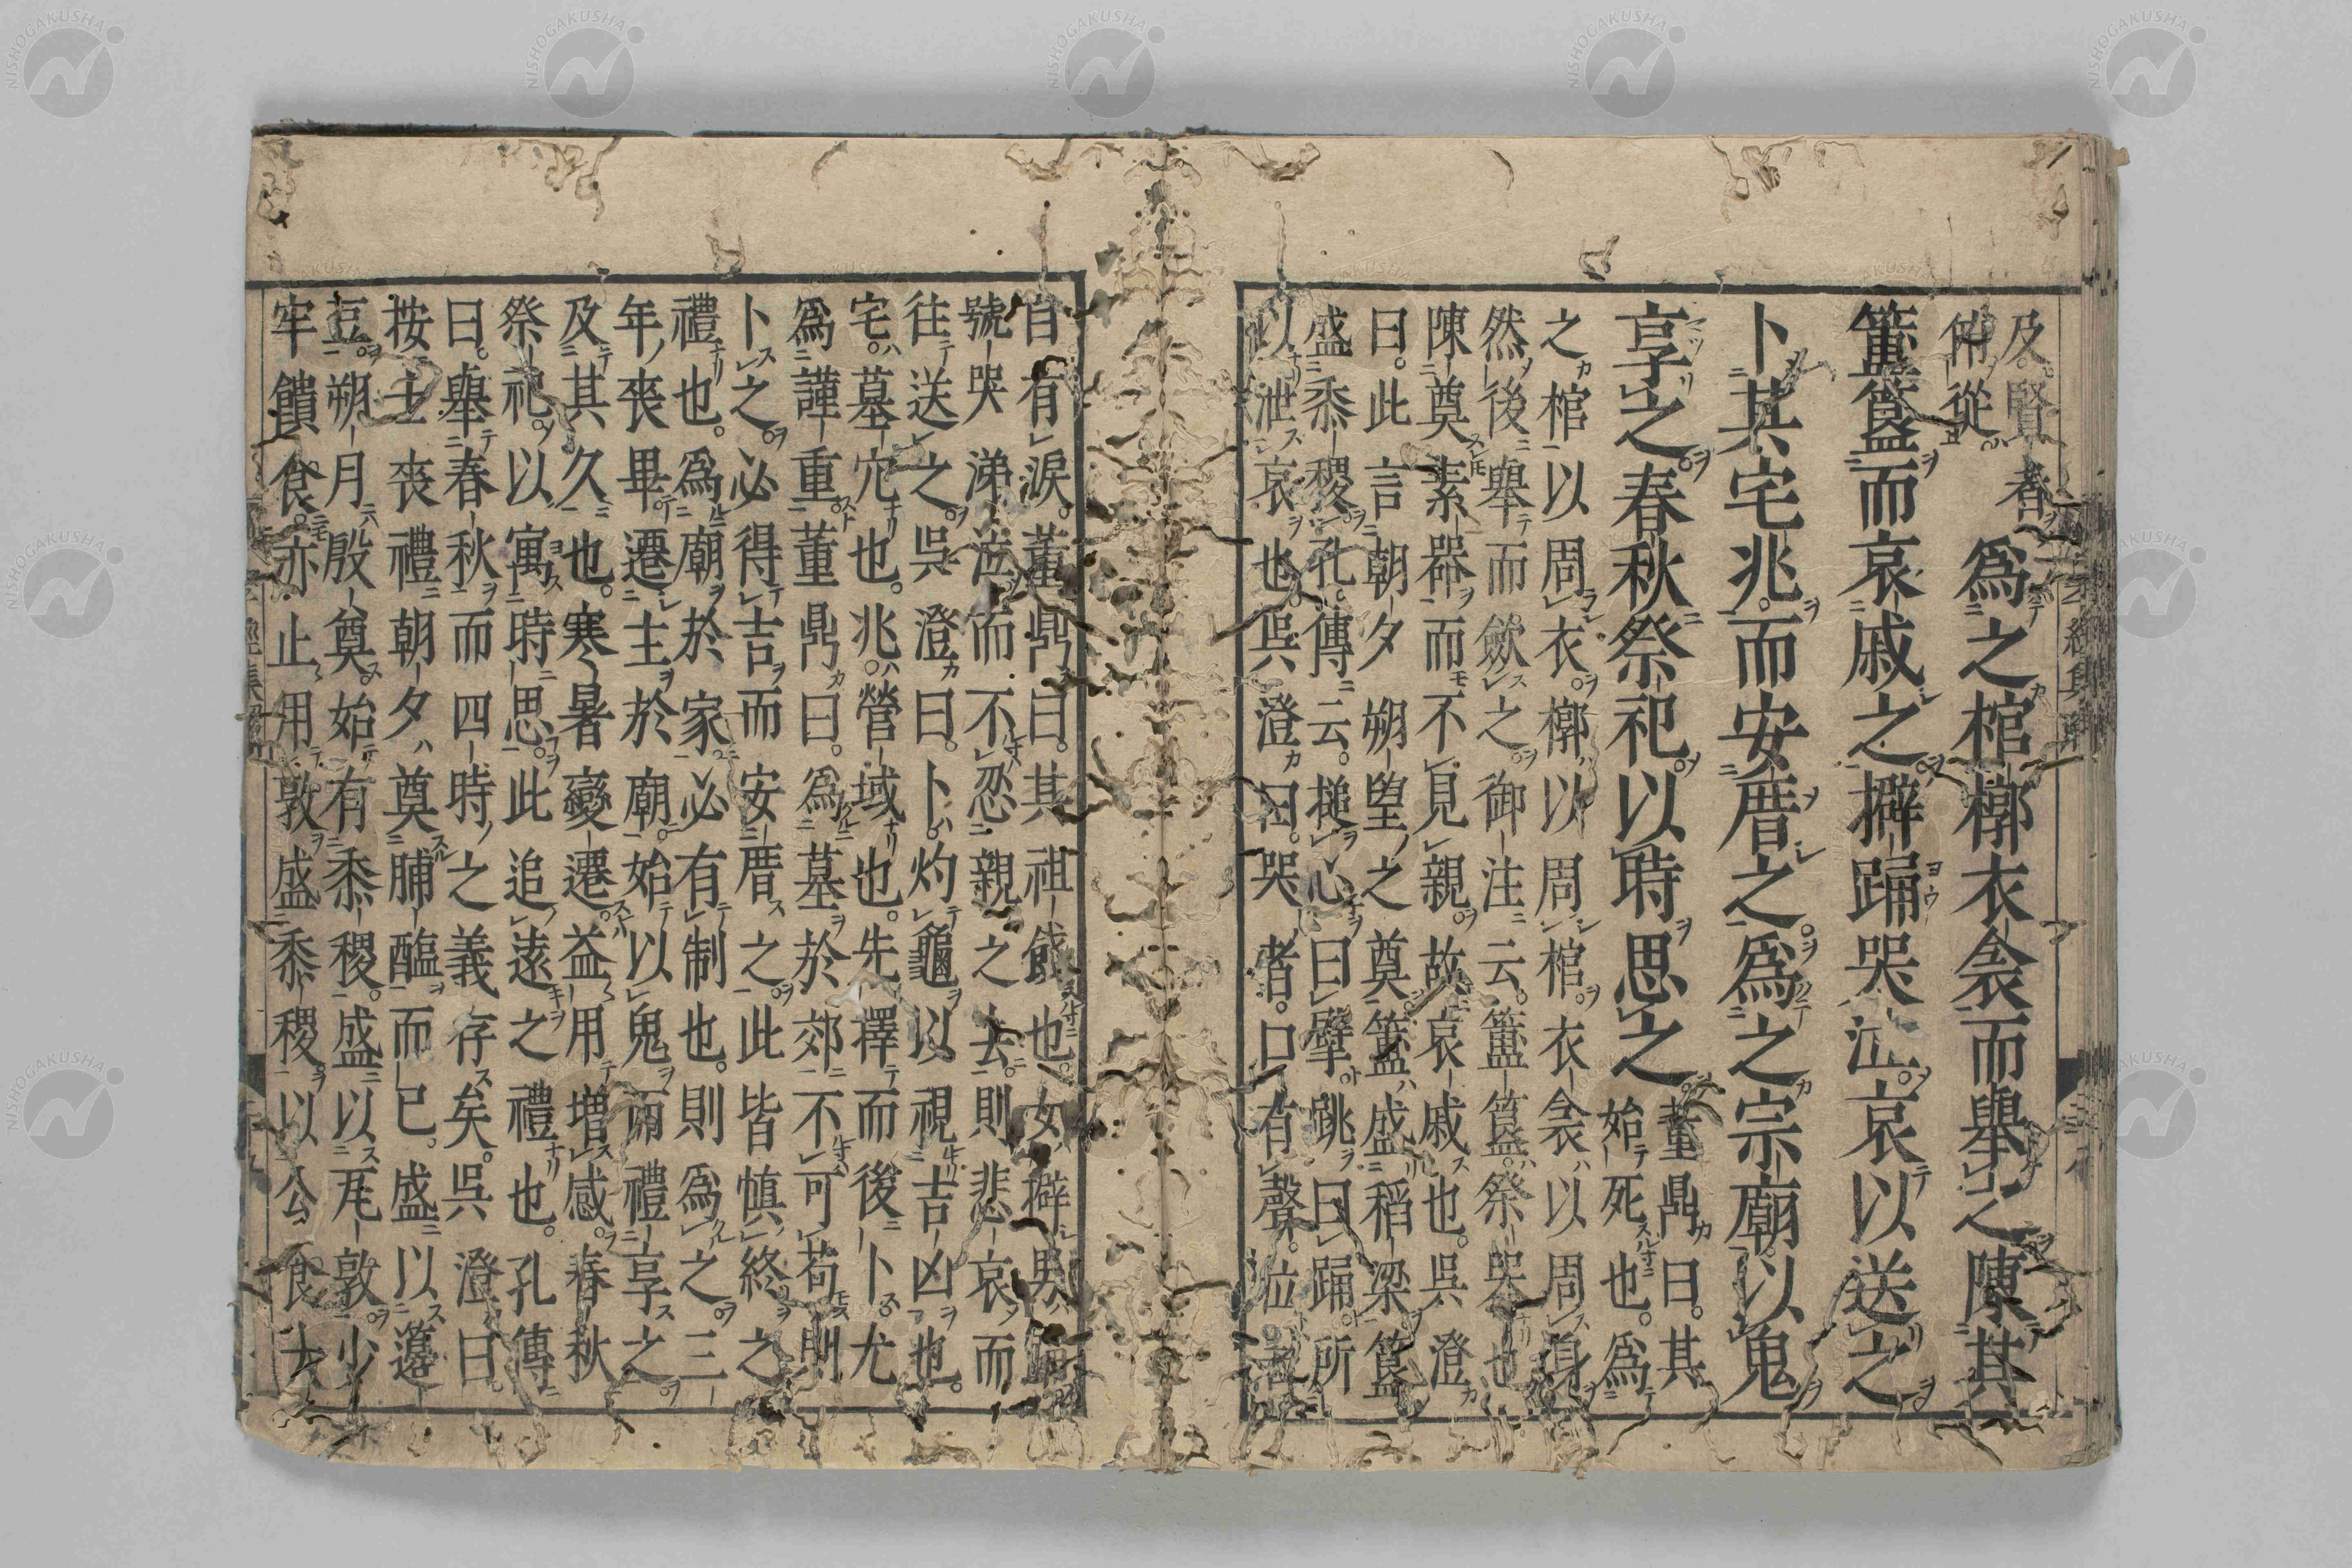 及賢者
俯從
爲之棺槨衣衾而擧之陳其
簠簋而哀戚之擗踊哭泣哀以送之
卜其宅兆而安厝之爲之宗廟以鬼
享之春秋祭祀以時思之
董鼎曰其
始死也爲
之棺以周衣槨以周棺衣衾以周身
然後擧而斂之御注云簠簋祭器也
陳奠素器而不見親故哀戚也吳澄
曰此言朝夕朔望之奠簠盛稻梁簋
盛黍稷孔傳云搥心曰擘跳曰踊所
以泄哀也吳澄曰哭者口有聲泣者
自有淚董鼎曰其祖餞也女擗男踊
號哭涕泣而不忍親之去則悲哀而
往送之吳澄曰卜灼龜以視吉凶也
宅墓穴也兆營域也先擇而後卜尤
爲謹重董鼎曰爲墓於郊不可苟則
卜之必得吉而安厝之此皆慎終之
禮也爲廟於家必有制也則爲之三
年喪畢遷主於廟始以鬼而禮享之
及其久也寒暑變遷益用增感春秋
祭祀以寓時思此追遠之禮也孔傳
曰擧春秋而四時之義存矣吳澄曰
按士喪禮朝夕奠脯醢而已盛以籩
豆朔月殷奠始有黍稷盛以瓦敦少
牢饋食亦止用敦盛黍稷以公食大